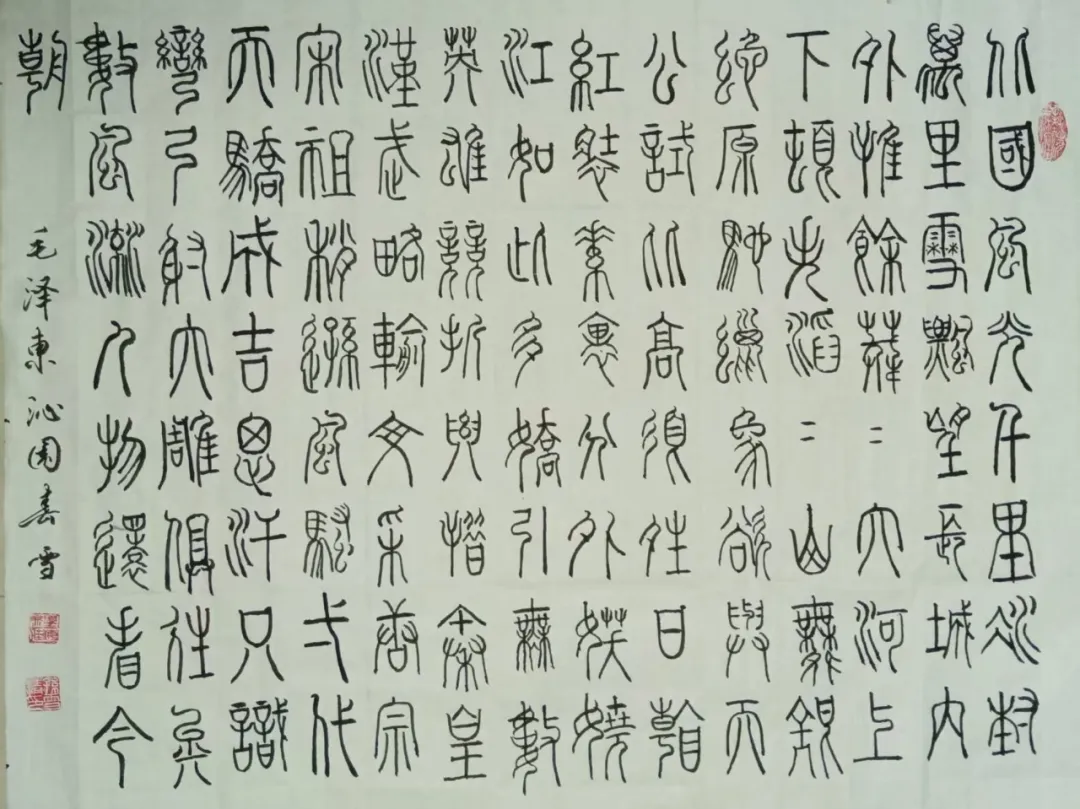 北國風光千里冰封
萬里雪飄望長城內
外惟餘莽二大河上
下頓失滔二山舞銀
蛇原馳蠟象欲與天
公試比高須晴日看
紅裝素裹分外妖嬈
江如此多嬌引無數
英雄競折腰惜秦皇
漢武略輸文采唐宗
宋祖稍遜風騷弌代
天驕成吉思汗只識
彎弓射大雕俱往矣
數風流人物還看今
朝
毛泽東沁园春雪